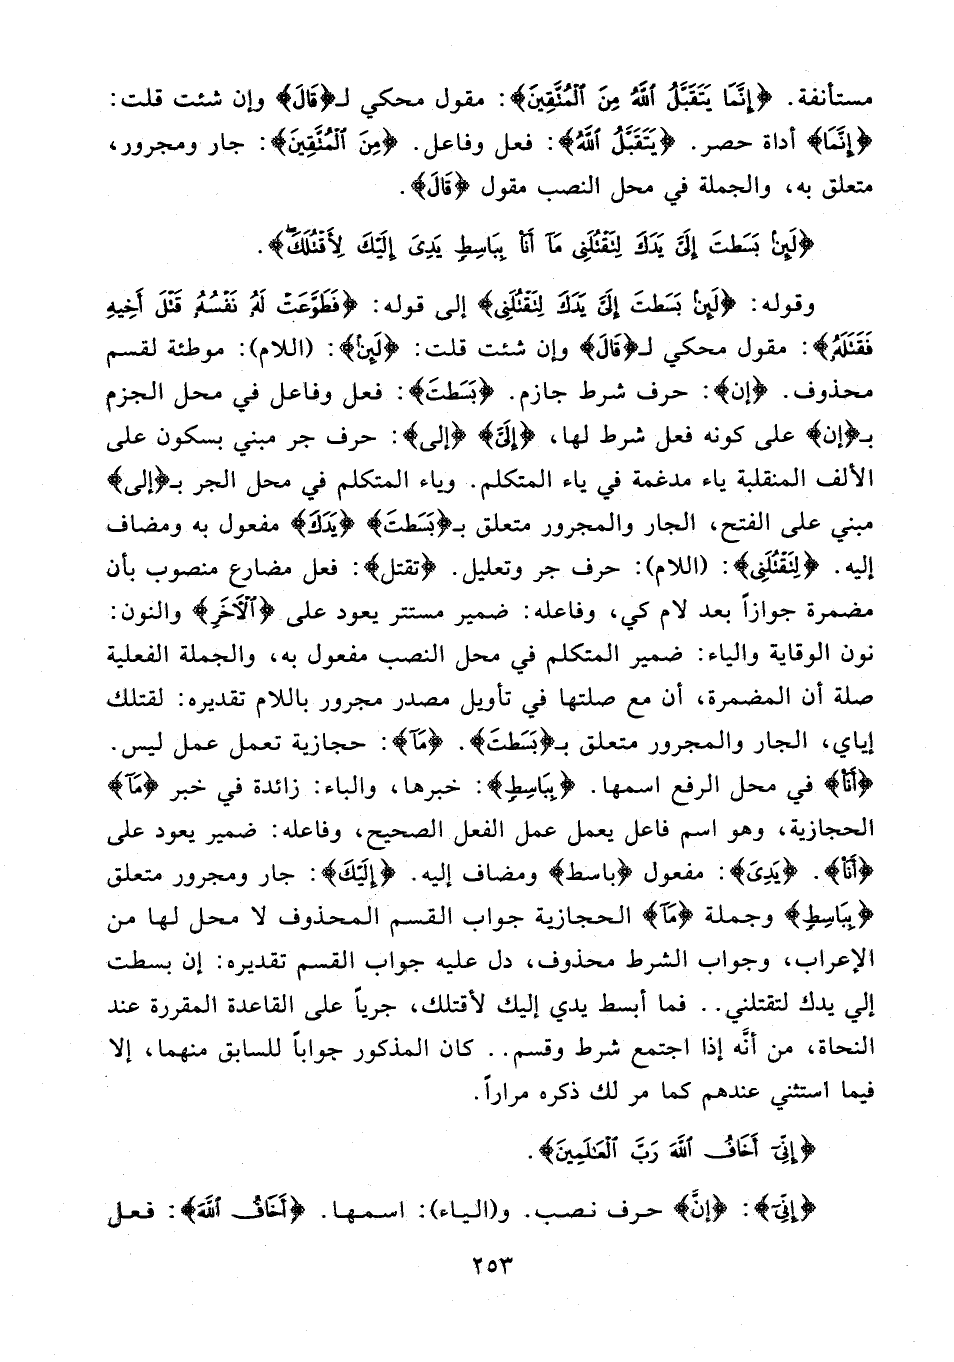 مستأنفة. ﴿إِنَّمَا يَتَقَبَّلُ اللَّهُ مِنَ الْمُتَّقِينَ﴾: مقول محكي لـ﴿قَالَ﴾ وإن شئت قلت:
﴿إِنَّمَا﴾ أداة حصر. ﴿يَتَقَبَّلُ اللَّهُ﴾: فعل وفاعل. ﴿مِنَ الْمُتَّقِينَ﴾: جار ومجرور،
متعلق به، والجملة في محل النصب مقول ﴿قَالَ﴾.
﴿لَئِنْ بَسَطْتَ إِلَيَّ يَدَكَ لِتَقْتُلَنِي مَا أَنَا بِبَاسِطٍ يَدِيَ إِلَيْكَ لِأَقْتُلَكَ﴾.
وقوله: ﴿لَئِنْ بَسَطْتَ إِلَيَّ يَدَكَ لِتَقْتُلَنِي﴾ إلى قوله: ﴿فَطَوَّعَتْ لَهُ نَفْسُهُ قَتْلَ أَخِيهِ
فَقَتَلَهُ﴾: مقول محكي لـ﴿قَالَ﴾ وإن شئت قلت: ﴿لَئِنْ﴾: (اللام): موطئة لقسم
محذوف. ﴿إن﴾: حرف شرط جازم. ﴿بَسَطْتَ﴾: فعل وفاعل في محل الجزم
بـ﴿إن﴾ على كونه فعل شرط لها، ﴿إِلَيَّ﴾ ﴿إلى﴾: حرف جر مبني بسكون على
الألف المنقلبة ياء مدغمة في ياء المتكلم. وياء المتكلم في محل الجر بـ﴿إلى﴾
مبني على الفتح، الجار والمجرور متعلق بـ﴿بَسَطْتَ﴾ ﴿يَدَكَ﴾ مفعول به ومضاف
إليه. ﴿لِتَقْتُلَنِي﴾: (اللام): حرف جر وتعليل. ﴿تقتل﴾: فعل مضارع منصوب بأن
مضمرة جوازاً بعد لام كي، وفاعله: ضمير مستتر يعود على ﴿الْآخَرِ﴾ والنون:
نون الوقاية والياء: ضمير المتكلم في محل النصب مفعول به، والجملة الفعلية
صلة أن المضمرة، أن مع صلتها في تأويل مصدر مجرور باللام تقديره: لقتلك
إياي، الجار والمجرور متعلق بـ﴿بَسَطْتَ﴾. ﴿مَا﴾: حجازية تعمل عمل ليس.
﴿أَنَا﴾ في محل الرفع اسمها. ﴿بِبَاسِطٍ﴾: خبرها، والباء: زائدة في خبر ﴿مَا﴾
الحجازية، وهو اسم فاعل يعمل عمل الفعل الصحيح، وفاعله: ضمير يعود على
﴿أَنَا﴾. ﴿يَدِيَ﴾: مفعول ﴿باسط﴾ ومضاف إليه. ﴿إِلَيْكَ﴾: جار ومجرور متعلق
﴿بِبَاسِطٍ﴾ وجملة ﴿مَا﴾ الحجازية جواب القسم المحذوف لا محل لها من
الإعراب، وجواب الشرط محذوف، دل عليه جواب القسم تقديره: إن بسطت
إلي يدك لتقتلني.. فما أبسط يدي إليك لأقتلك، جرياً على القاعدة المقررة عند
النحاة، من أنَّه إذا اجتمع شرط وقسم.. كان المذكور جواباً للسابق منهما، إلا
فيما استثني عندهم كما مر لك ذكره مراراً.
﴿إِنِّي أَخَافُ اللَّهَ رَبَّ الْعَالَمِينَ﴾.
﴿إِنِّي﴾: ﴿إِنَّ﴾ حرف نصب. و(الياء): اسمها. ﴿أَخَافُ اللَّهَ﴾: فعل
٢٥٣